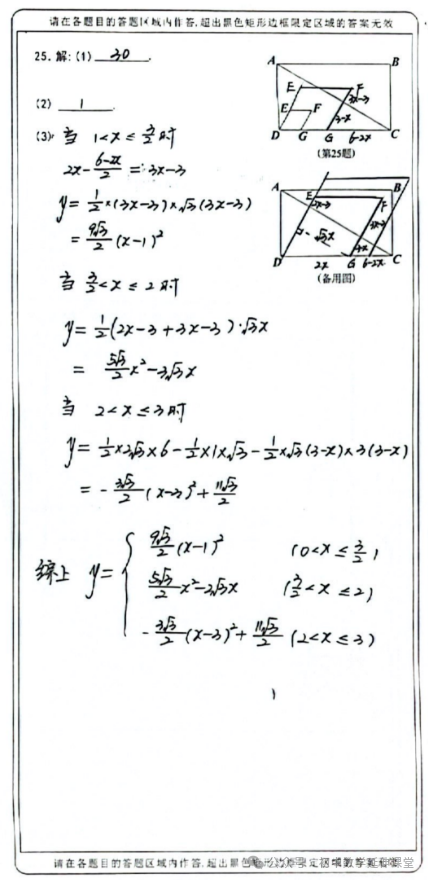 请在各题目的答题区域内作答,超出黑色矩形边框限定区域的答案无效
25.解:(1) 30 .
(2) 1
(3): 当 1<x≤3/2时
2x-(6-2x)/2=3x-3
y=1/2×(3x-3)×√3(3x-3)
=9√3/2(x-1)²
当 3/2<x≤2时
y=1/2(2x-3+3x-3)·√3x
=5√3/2x²-3√3x
当 2<x≤3时
y=1/2×3√3×6-1/2×1×√3-1/2×√3(3-x)×3(3-x)
=-3√3/2(x-3)²+11√3/2
综上 y={
9√3/2(x-1)² (0<x≤3/2)
5√3/2x²-3√3x (3/2<x≤2)
-3√3/2(x-3)²+11√3/2 (2<x≤3)
A B
E F
3x-3
E F
3-x
D G G 6-2x C
(第25题)
A B
E F
3x-3
√3x
D 2x G 6-2x C
(备用图)
请在各题目的答题区域内作答,超出黑色矩形边框限定区域的答案无效
公众号